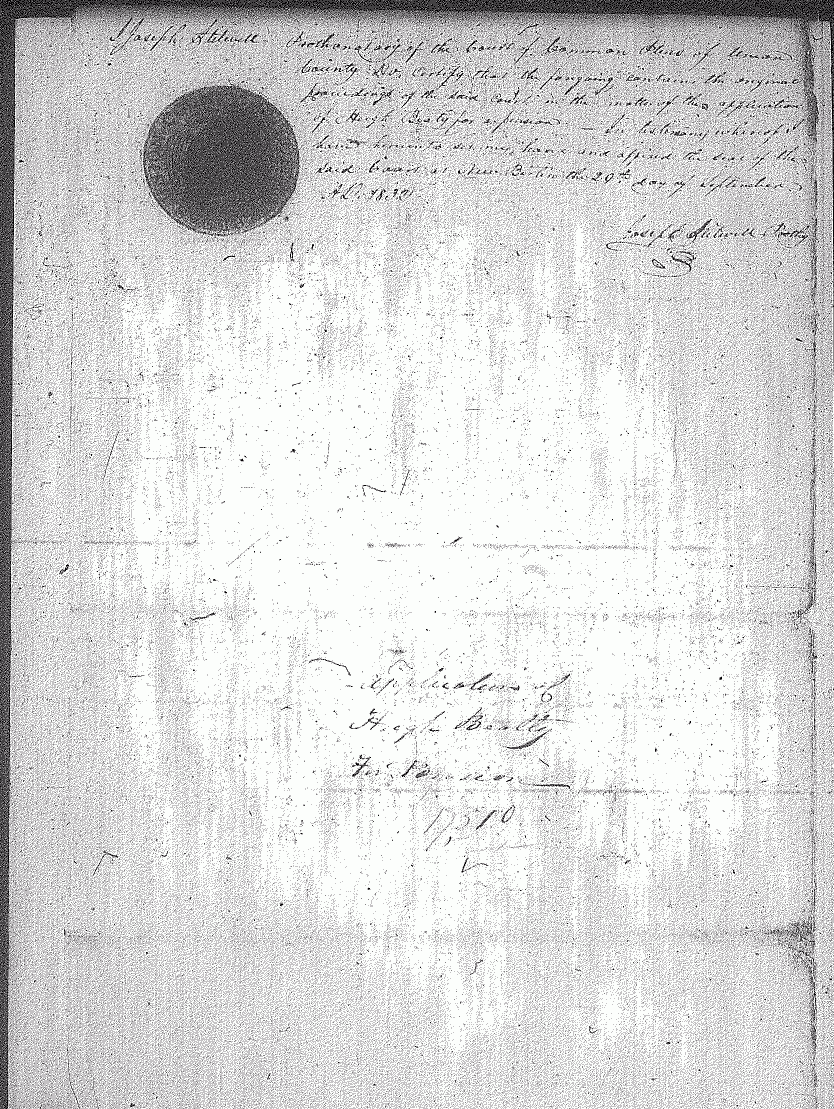 I Joseph Stilwell Prothonotary of the Court of Common Pleas of Union
County Do, Certify that the foregoing contains the original
proceedings of the said Court in the matter of the application
of Hugh Beatty for a pension — In testimony whereof I
have hereunto set my hand and affixed the seal of the
said Court at New Berlin the 29th day of September
A.D. 1832
Joseph Stilwell Prothy
Application of
Hugh Beatty
For Pension
17,510